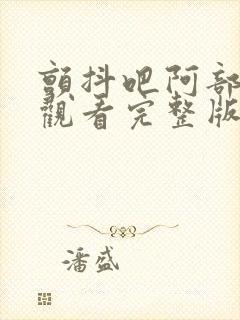 顫抖吧阿部
觀看完整版
潘盛